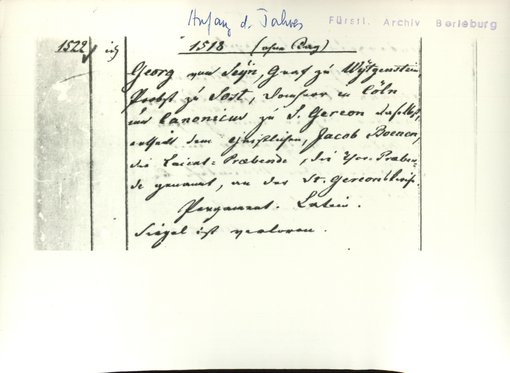 Anfang d. Jahres
Fürstl. Archiv Berleburg
1522 1518 (ohne Tag)
Georg von Seÿn, Graf zu Wÿtgenstein,
Probst zu Sost, Domherr in Cöln
und Canonicus zu S. Gereon daselbst,
ertheilt dem Geistlichen, Jacob Boenen,
die Laicat-Præbende, die Præben-
de genannt, an der St. Gereons
Pergament. Latein.
Siegel ist verloren.